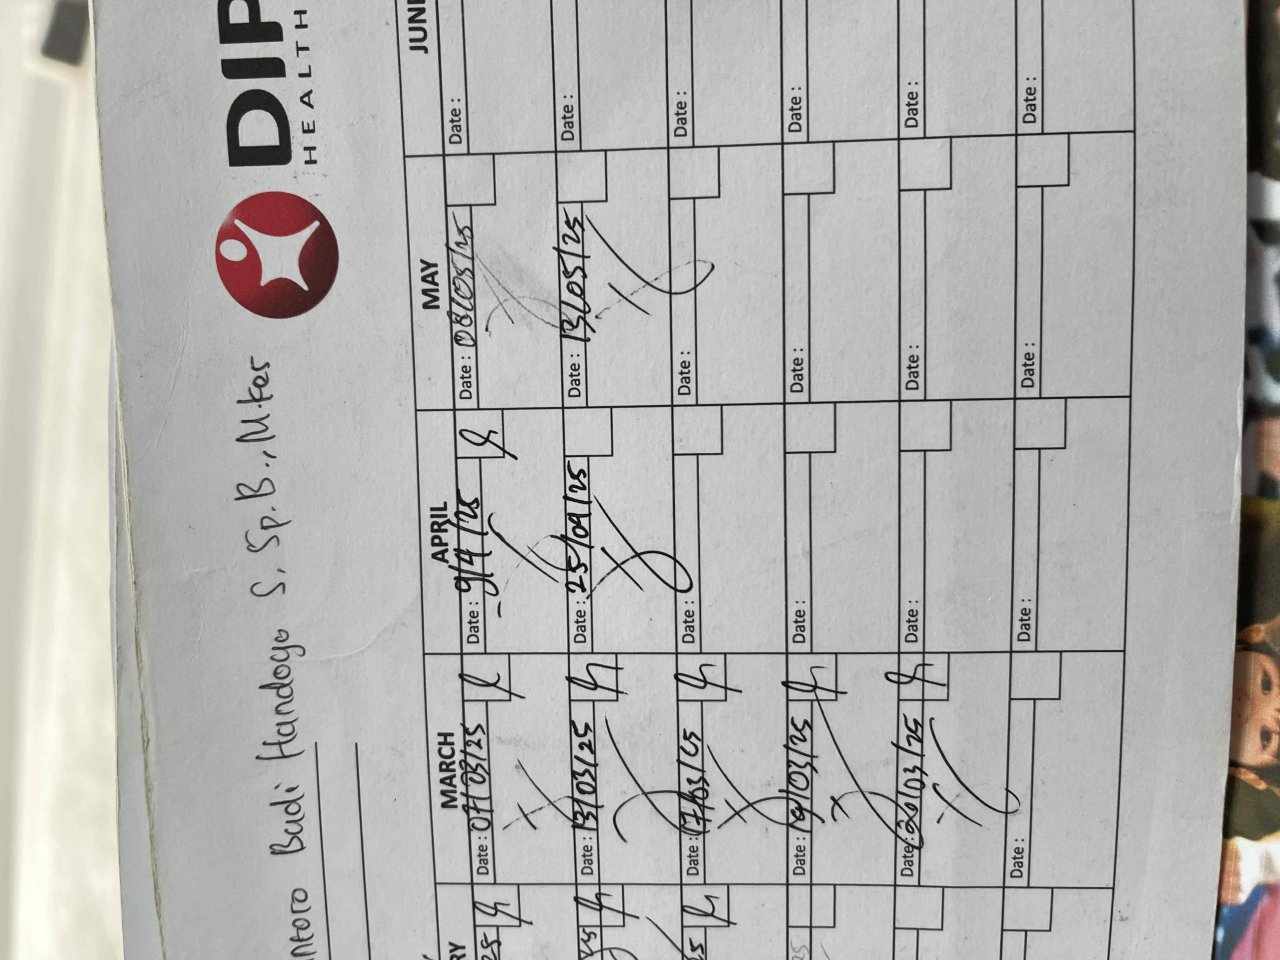 DIP
HEALTH
ntoro Budi Handogo S. Sp.B., M.Kes
RY MARCH APRIL MAY JUNE
25 Date: 07/03/25 Date: 9/4/25 Date: 08/05/25 Date:
25 Date: 13/03/25 Date: 25/04/25 Date: 13/05/25 Date:
25 Date: 17/03/25 Date: Date: Date:
25 Date: 19/03/25 Date: Date: Date:
Date: 20/03/25 Date: Date: Date:
Date: Date: Date: Date: